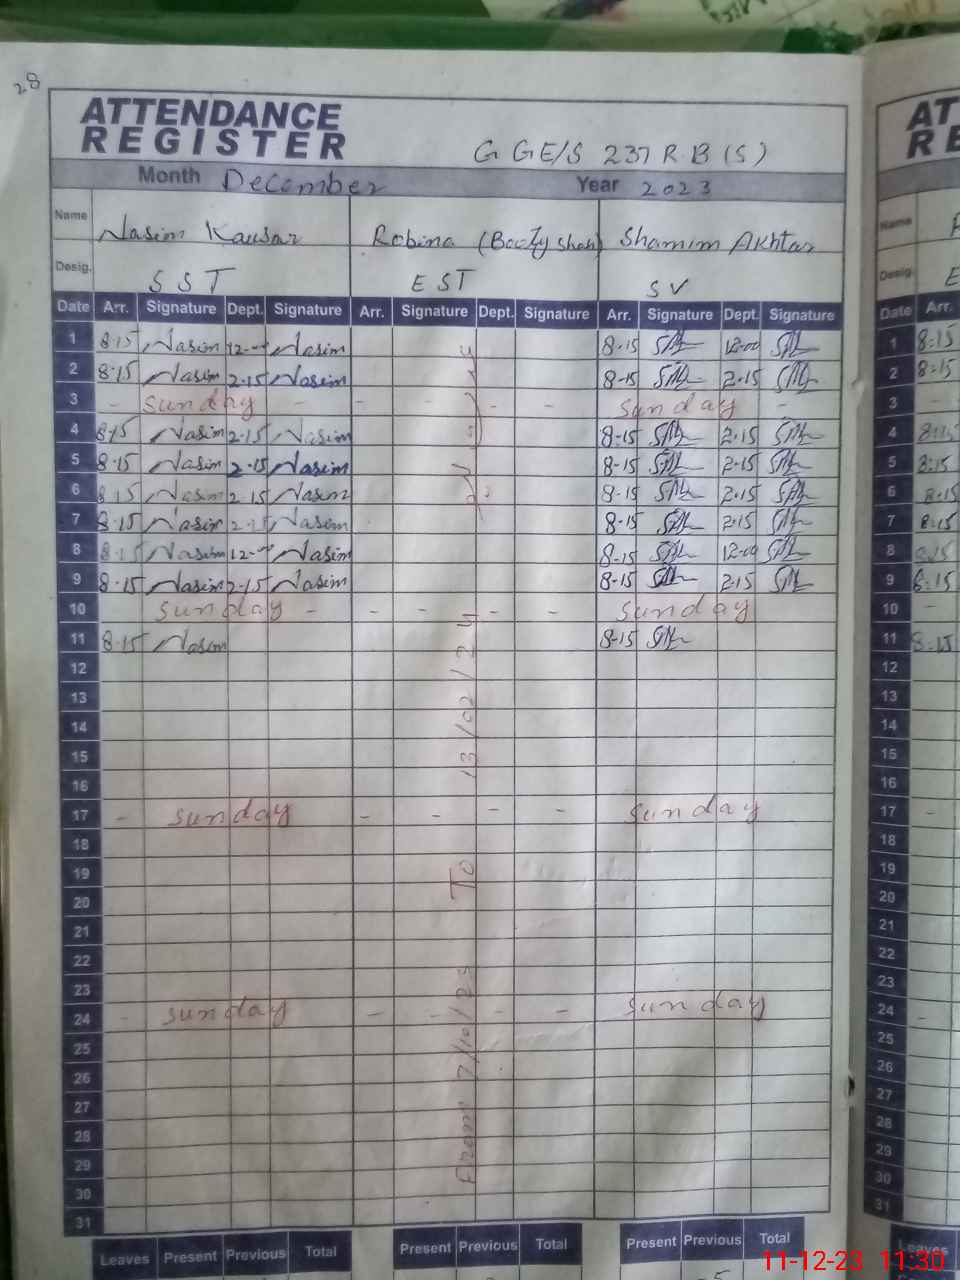 28
ATTENDANCE
REGISTER
G GE/S 237 R.B (S)
Month December Year 2023
Name Nasim Kausar Robina Shamim Akhtar
Desig. SST EST SV
Date Arr. Signature Dept. Signature Arr. Signature Dept. Signature Arr. Signature Dept. Signature
1 8.15 Nasim 12-00 Nasim 8-15 12-00
2 8.15 Nasim 2.15 Nasim 8-15 2.15
3 - Sunday - - - - - - Sunday -
4 8.15 Nasim 2.15 Nasim 8-15 2.15
5 8.15 Nasim 2.15 Nasim 8-15 2.15
6 8.15 Nasim 2.15 Nasim 8-15 2.15
7 8.15 Nasim 2.15 Nasim 8-15 2.15
8 8.15 Nasim 12-00 Nasim 8-15 12-00
9 8.15 Nasim 2.15 Nasim 8-15 2.15
10 Sunday - - - - - Sunday
11 8.15 Nasim 8-15
12
13
14
15
16
17 - Sunday - - - - Sunday
18
19
20
21
22
23
24 - Sunday - - - - Sunday
25
26
27
28
29
30
31
From 7/10/23 To 13/02/24
Leaves Present Previous Total Present Previous Total Present Previous Total
AT
RE
Name
Desig. E
Date Arr.
1 8:15
2 8:15
3 -
4 8:15
5 8:15
6 8:15
7 8:15
8 8:15
9 8:15
10 -
11 8:15
12
13
14
15
16
17 -
18
19
20
21
22
23
24 -
25
26
27
28
29
30
31
Leaves
11-12-23 11:30